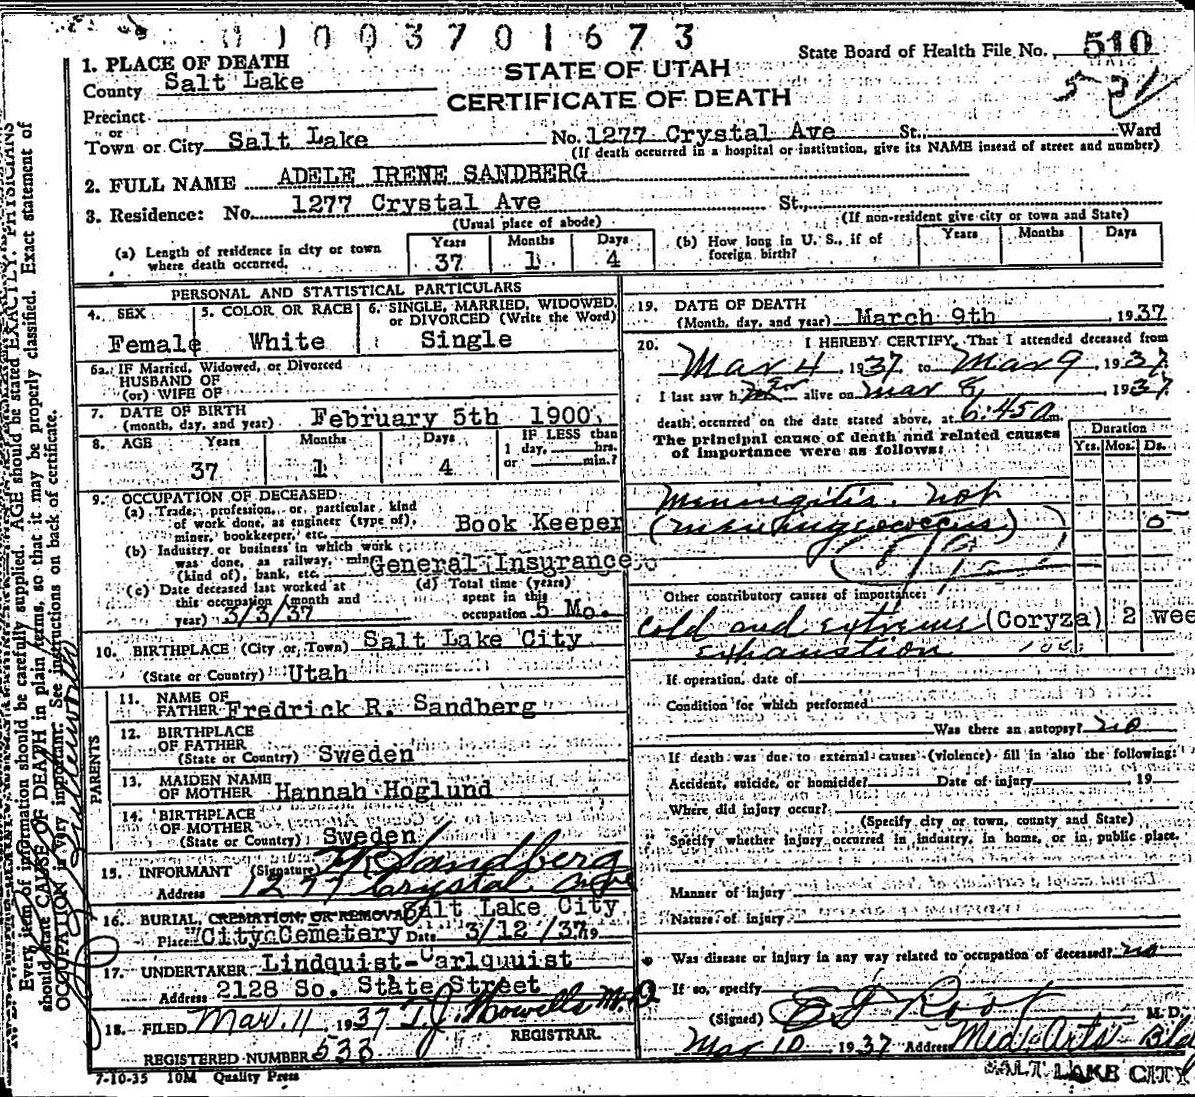 1003701673
State Board of Health File No. 510
1. PLACE OF DEATH
STATE OF UTAH
County Salt Lake
CERTIFICATE OF DEATH
Precinct
or
Town or City Salt Lake No. 1277 Crystal Ave St., Ward
(If death occurred in a hospital or institution, give its NAME instead of street and number)
2. FULL NAME ADELE IRENE SANDBERG
3. Residence: No. 1277 Crystal Ave St.,
(Usual place of abode) (If non-resident give city or town and State)
(a) Length of residence in city or town where death occurred. Years 37 Months 1 Days 4
(b) How long in U. S., if of foreign birth? Years Months Days
PERSONAL AND STATISTICAL PARTICULARS
4. SEX Female
5. COLOR OR RACE White
6. SINGLE, MARRIED, WIDOWED, or DIVORCED (Write the Word) Single
6a. IF Married, Widowed, or Divorced
HUSBAND OF
(or) WIFE OF
7. DATE OF BIRTH
(month, day, and year) February 5th 1900
8. AGE Years 37 Months 1 Days 4 IF LESS than 1 day, hrs. or min.?
9. OCCUPATION OF DECEASED:
(a) Trade, profession, or particular kind
of work done, as engineer (type of),
miner, bookkeeper, etc. Book Keeper
(b) Industry or business in which work
was done, as railway, min
(kind of), bank, etc. General Insurance Co
(c) Date deceased last worked at
this occupation (month and
year) 3/3/37
(d) Total time (years)
spent in this
occupation 5 Mo.
10. BIRTHPLACE (City or Town) Salt Lake City
(State or Country) Utah
PARENTS
11. NAME OF
FATHER Fredrick R. Sandberg
12. BIRTHPLACE
OF FATHER
(State or Country) Sweden
13. MAIDEN NAME
OF MOTHER Hannah Hoglund
14. BIRTHPLACE
OF MOTHER
(State or Country) Sweden
15. INFORMANT (Signature) F R Sandberg
Address 1277 Crystal Ave
16. BURIAL, CREMATION, OR REMOVAL Salt Lake City
Place City Cemetery Date 3/12/37 19
17. UNDERTAKER Lindquist-Carlquist
Address 2128 So. State Street
18. FILED Mar. 11, 1937 T.J. Howells M.D
REGISTRAR.
REGISTERED NUMBER 533
7-10-35 10M Quality Press
19. DATE OF DEATH
(Month, day, and year) March 9th, 1937
20. I HEREBY CERTIFY, That I attended deceased from
Mar 4, 1937 to Mar 9, 1937
I last saw her alive on Mar 8, 1937
death occurred on the date stated above, at 6:45a m.
The principal cause of death and related causes
of importance were as follows:
Duration
Yrs. Mos. Ds.
Meningitis. not
(meningococcus)
Other contributory causes of importance:
cold and extreme (Coryza) 2 wee
exhaustion
If operation, date of
Condition for which performed
Was there an autopsy? no
If death was due to external causes (violence) fill in also the following:
Accident, suicide, or homicide? Date of injury 19
Where did injury occur?
(Specify city or town, county and State)
Specify whether injury occurred in industry, in home, or in public place.
Manner of injury
Nature of injury
Was disease or injury in any way related to occupation of deceased? no
If so, specify
(Signed) E F Root M. D.
Mar 10 1937 Address Med. Arts Bld
SALT LAKE CITY
Every item of information should be carefully supplied. AGE should be stated EXACTLY. PHYSICIANS
should state CAUSE OF DEATH in plain terms, so that it may be properly classified. Exact statement of
OCCUPATION is very important. See instructions on back of certificate.